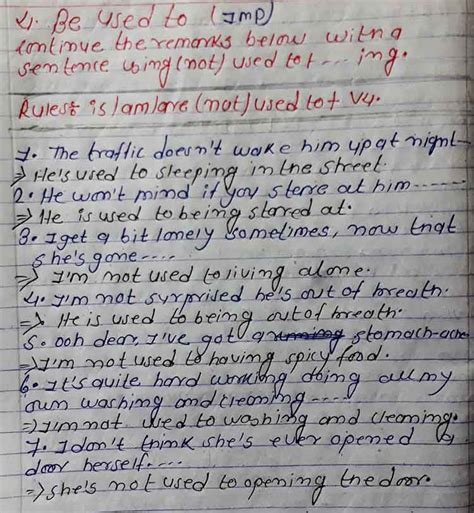 4. Be used to (Imp)
continue the remarks below with a
sentence using (not) used to + ... ing.
Rules: is/am/are (not) used to + V4.
1. The traffic doesn't wake him up at night
⇒ He's used to sleeping in the street.
2. He won't mind if you stere at him ......
⇒ He is used to being starred at.
3. I get a bit lonely sometimes, now that
she's gone....
⇒ I'm not used to living alone.
4. I'm not surprised he's out of breath.
⇒ He is used to being out of breath.
5. ooh dear, I've got a stomach-ache
⇒ I'm not used to having spicy food.
6. It's quite hard working doing all my
own washing and cleaning ....
⇒ I'm not used to washing and cleaning.
7. I don't think she's ever opened a
door herself....
⇒ she's not used to opening the door.